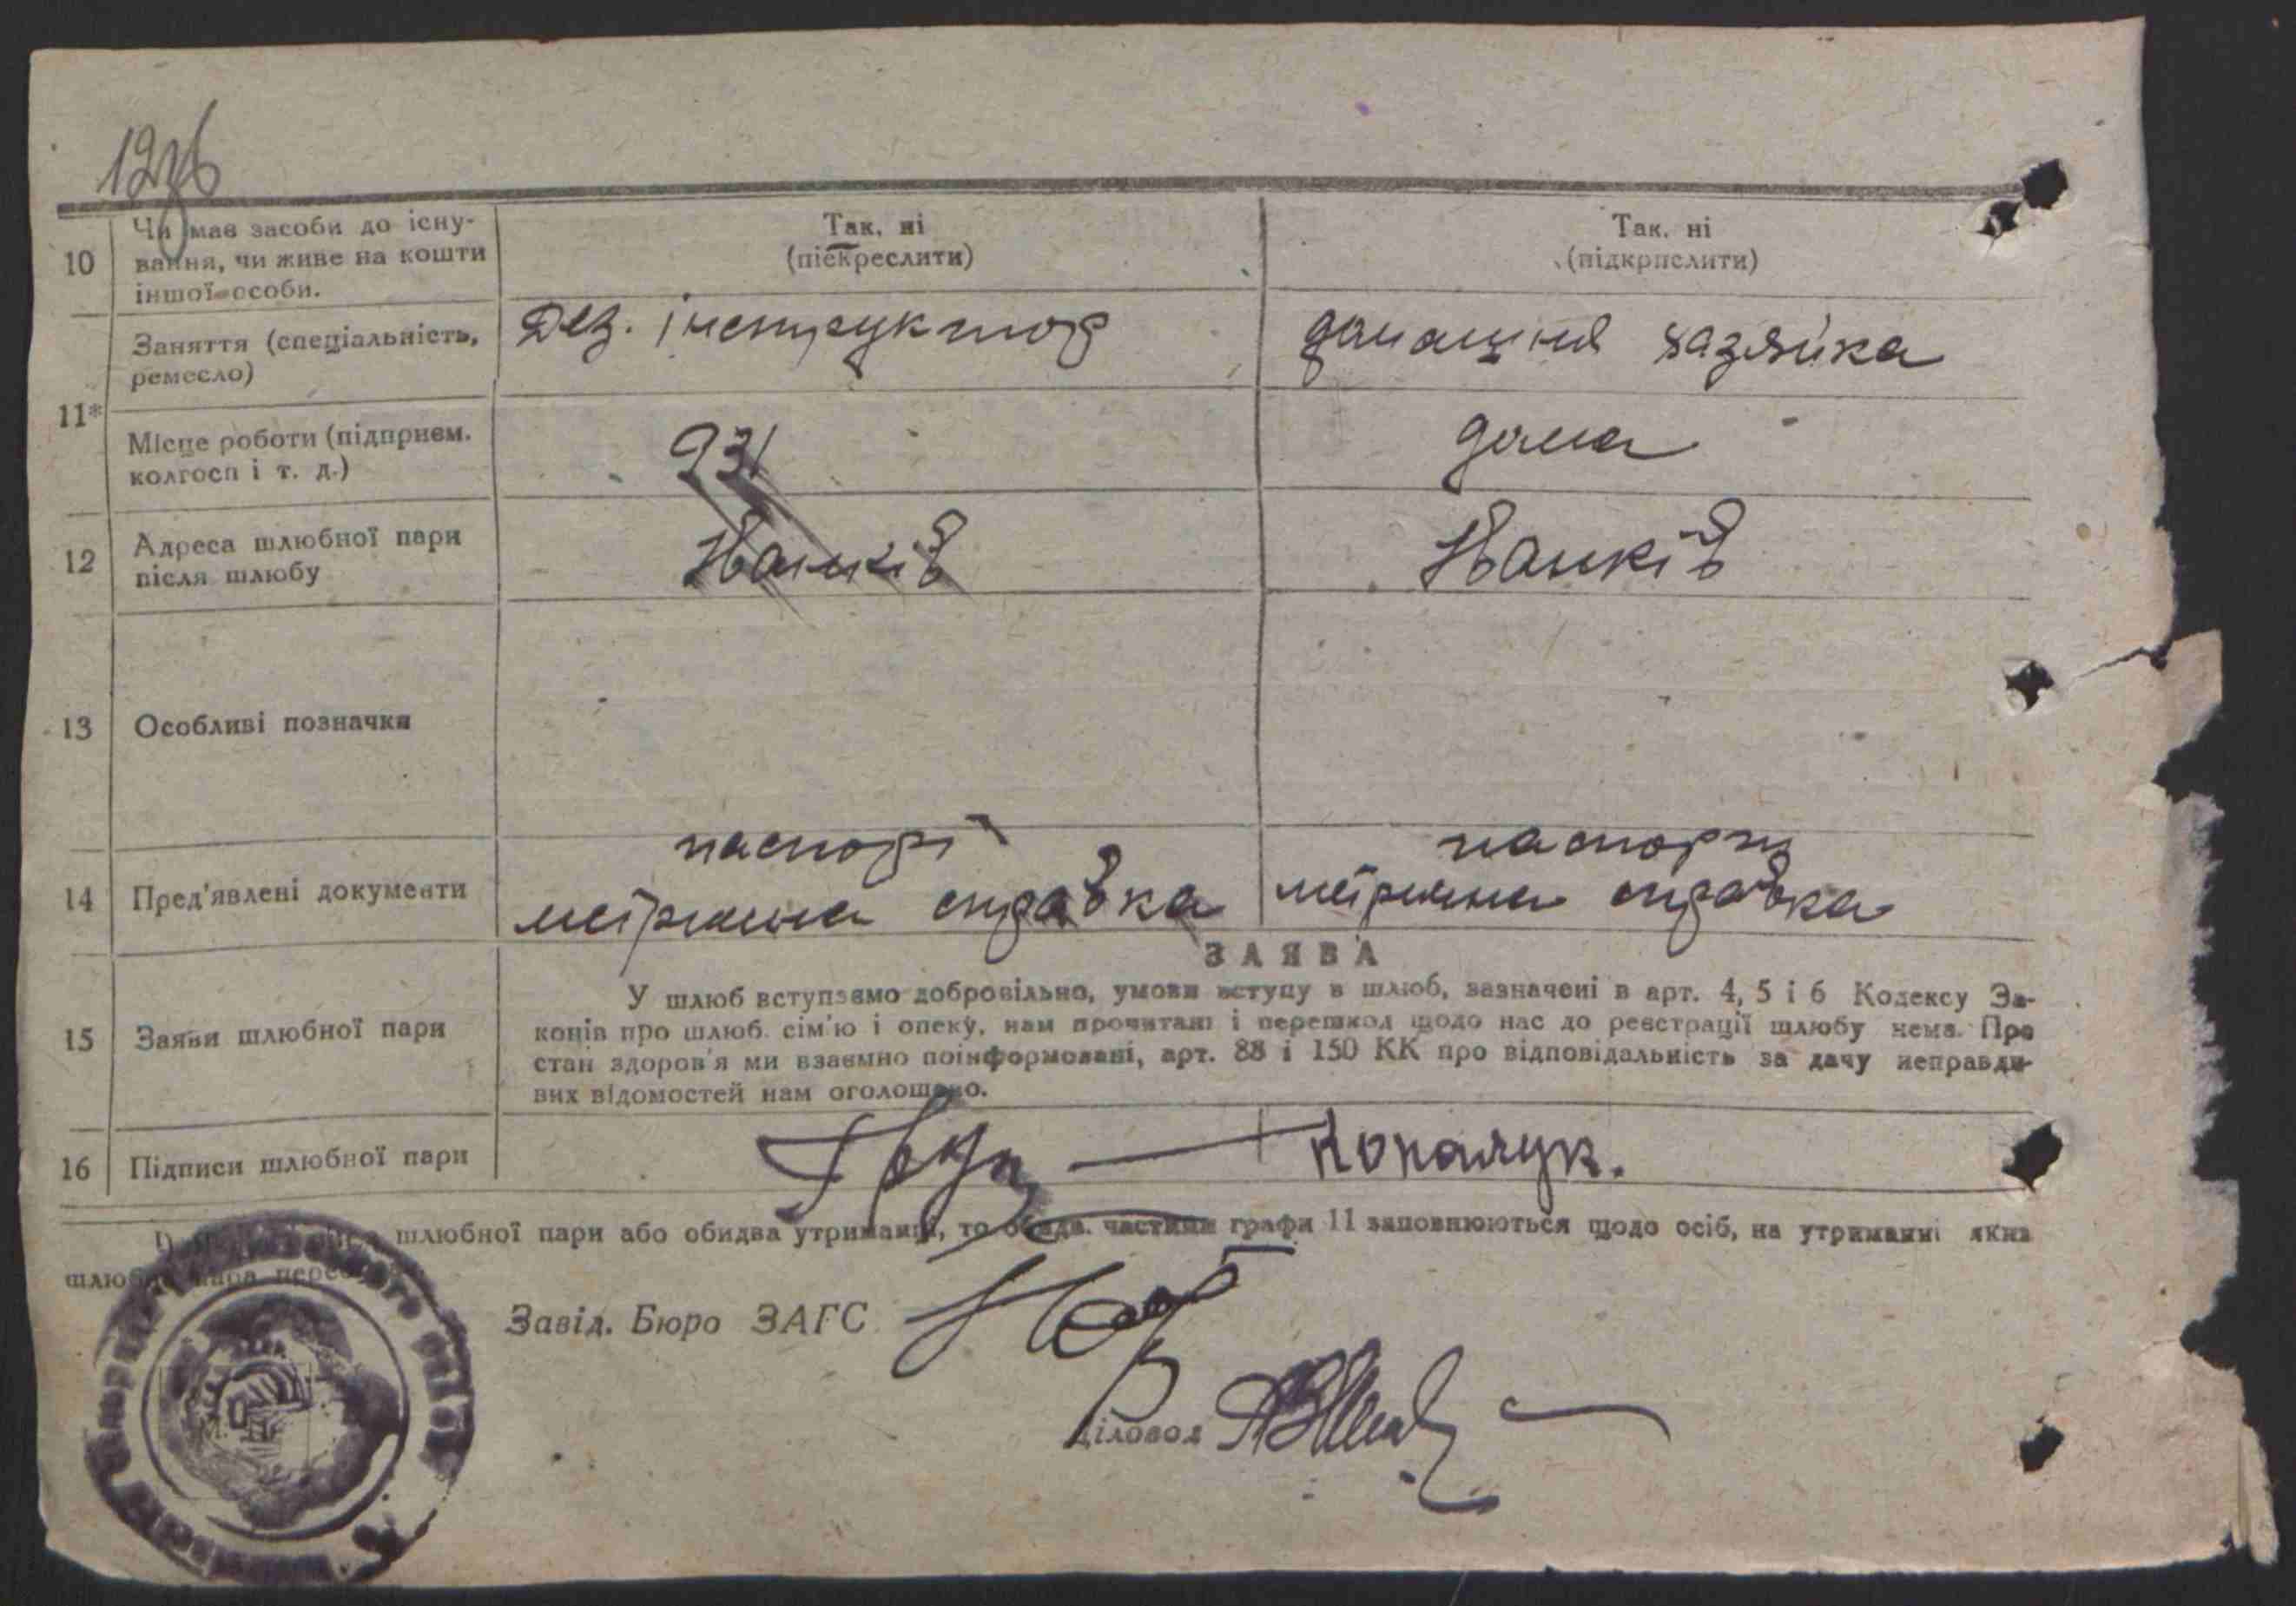 1236
10
Чи має засоби до існу-
вання, чи живе на кошти
іншої особи.
Так, ні
(підкреслити)
Так, ні
(підкрпслити)
11*
Заняття (спеціальність,
ремесло)
Дез. інструктор
домашня хазяйка
Місце роботи (підприєм.
колгосп і т. д.)
дома
12
Адреса шлюбної пари
після шлюбу
Іванків
Іванків
13
Особливі позначки
14
Пред'явлені документи
паспорт
метрична справка
паспорт
метрична справка
15
Заяви шлюбної пари
ЗАЯВА
У шлюб вступаємо добровільно, умови вступу в шлюб, зазначені в арт. 4, 5 і 6 Кодексу За-
конів про шлюб. сім'ю і опеку, нам прочитані і перешкод щодо нас до реєстрації шлюбу нема. Про
стан здоров'я ми взаємно поінформовані, арт. 88 і 150 КК про відповідальність за дачу неправди-
вих відомостей нам оголошено.
16
Підписи шлюбної пари
Копалук.
шлюбної пари або обидва утриманці, то обидв. частини графи 11 заповнюються щодо осіб, на утриманні яких
шлюбна пара
Завід. Бюро ЗАГС
Діловод